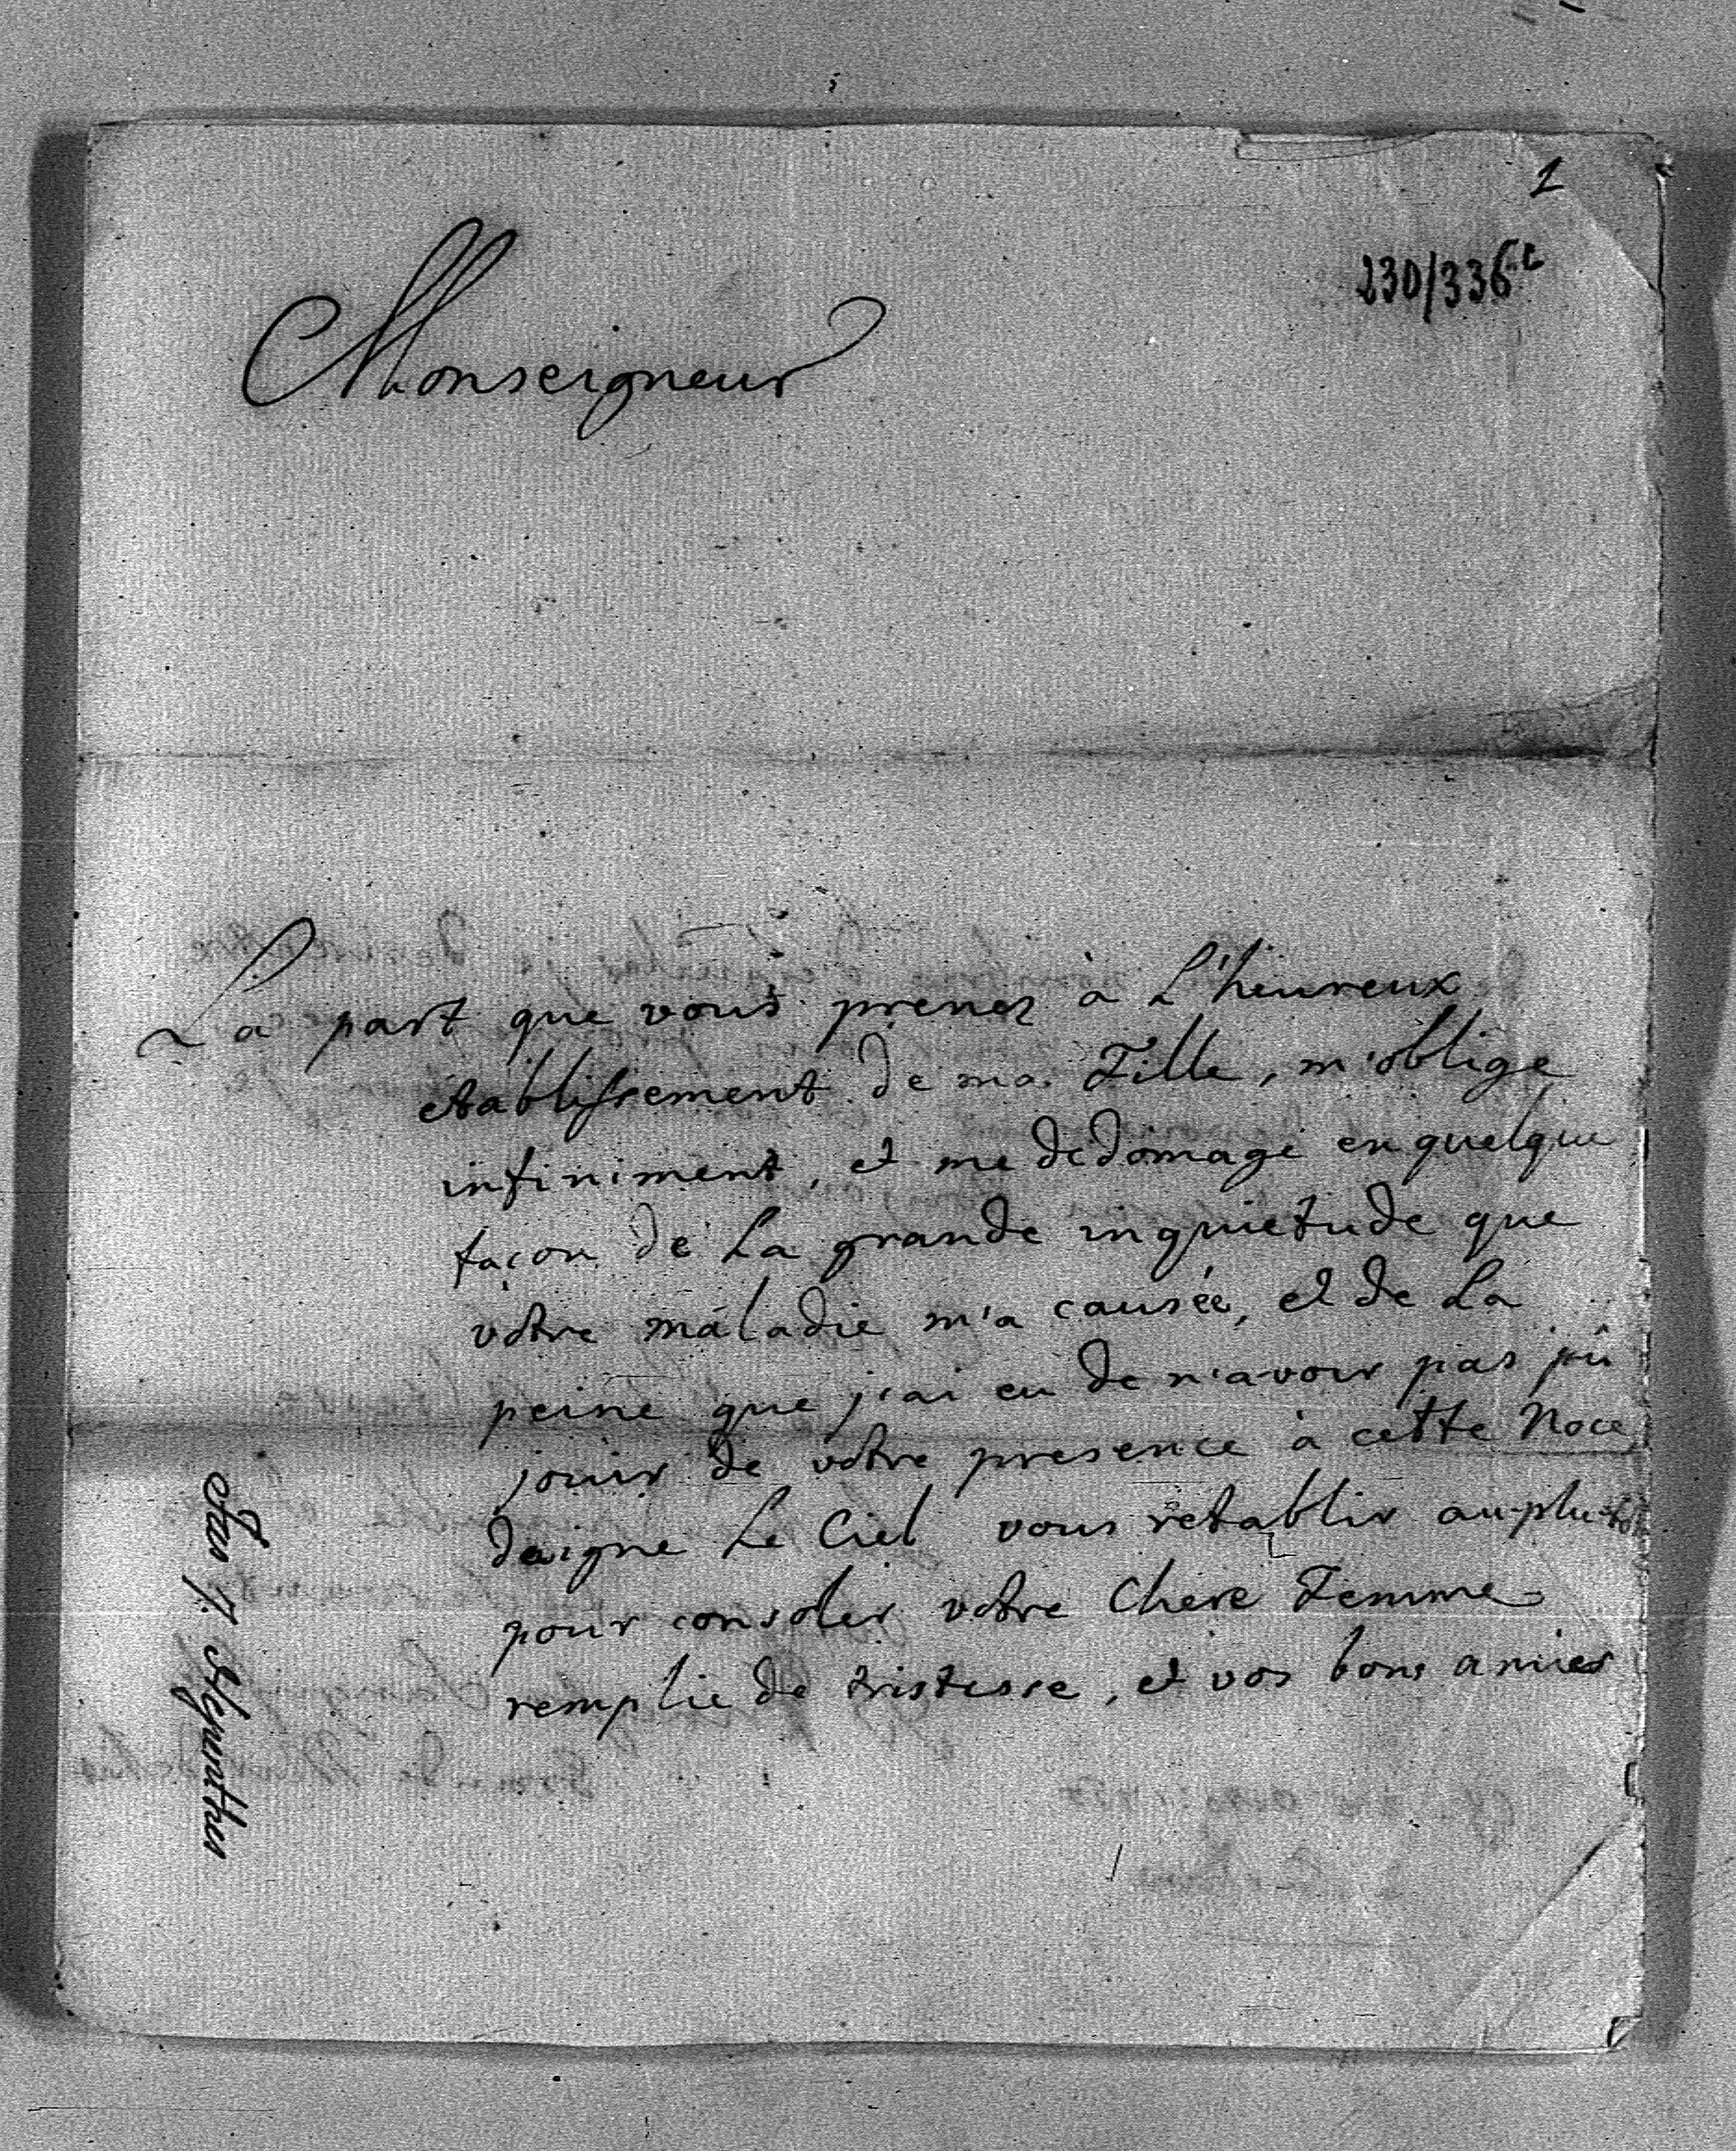 1
230/336
Monseigneur
La part que vous prenez à L'heureux
établissement de ma Fille, m'oblige
infiniment, et me dédomage en quelque
façon de La grande inquietude que
vôtre maladie m'a causée, et de La
peine que j'ai eu de n'avoir pas pû
jouir de vôtre presence à cette Noce
daigne Le Ciel vous retablir au-plutôt
pour consoler vôtre Chere Femme
remplie de tristesse, et vos bons amies